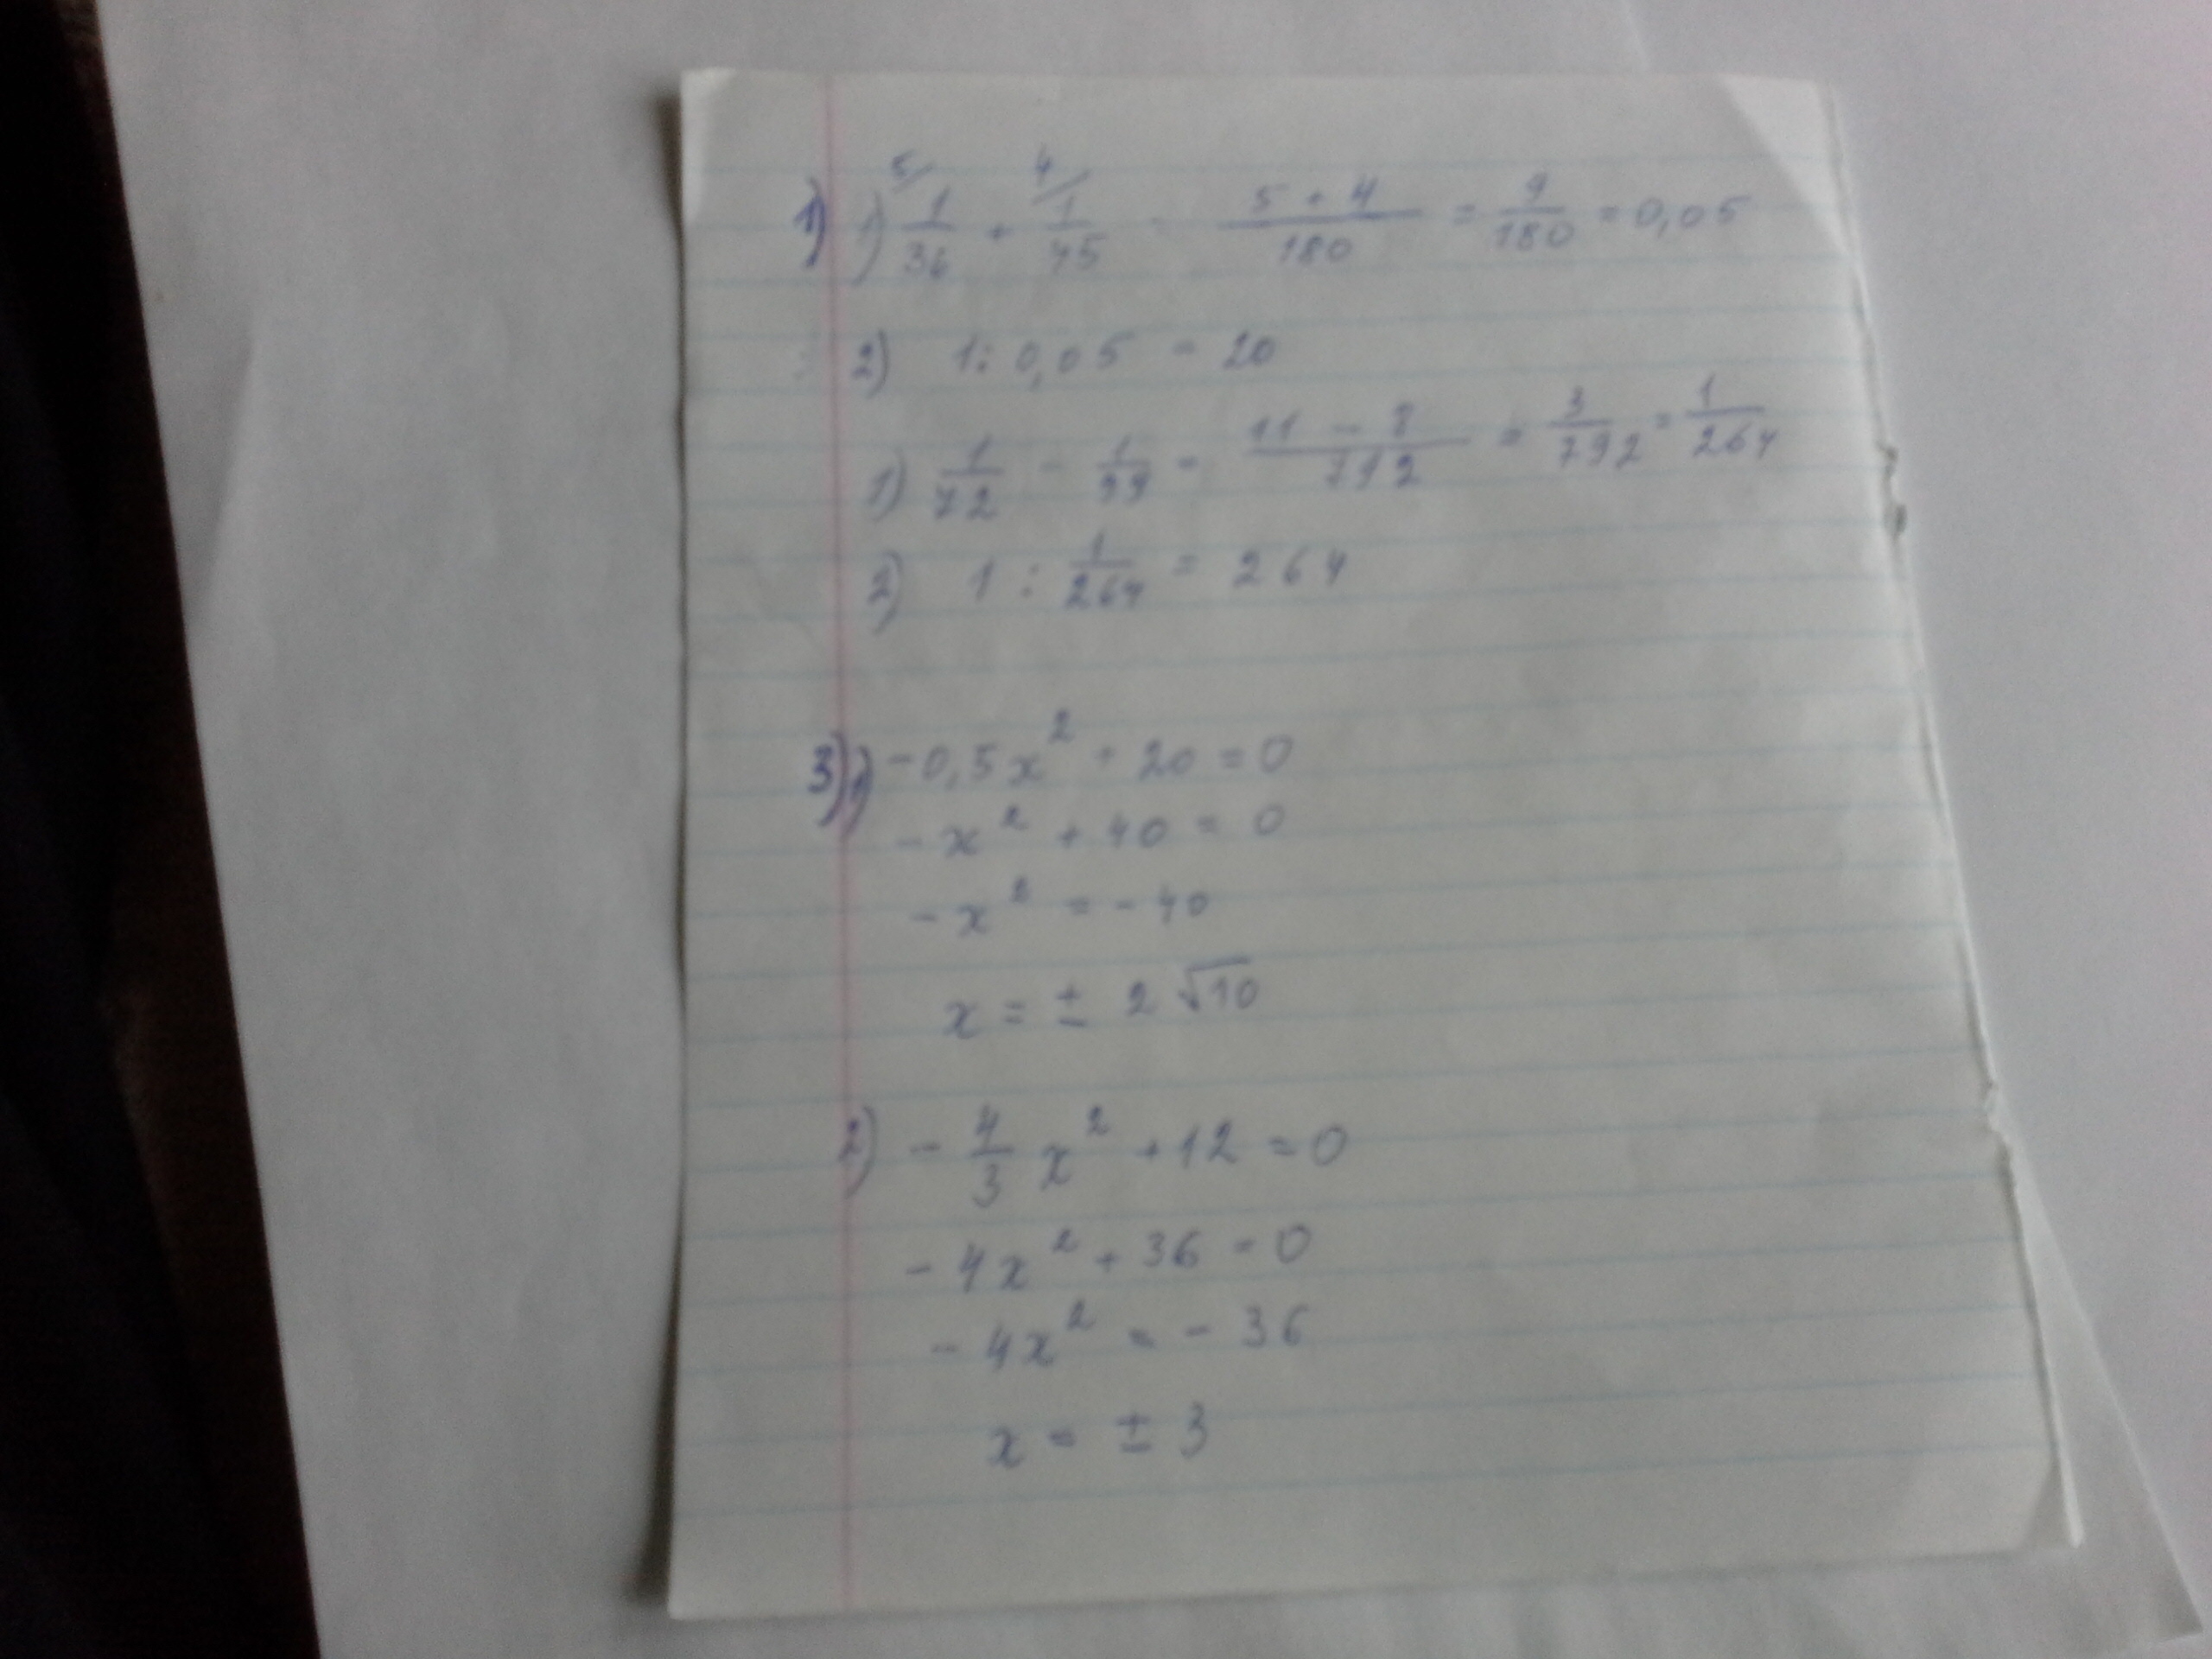 1) 1) 5/ 1/36 + 4/ 1/45 = (5 + 4)/180 = 9/180 = 0,05
2) 1 : 0,05 = 20
1) 1/72 - 1/99 = (11 - 8)/792 = 3/792 = 1/264
2) 1 : 1/264 = 264
3) 1) -0,5x² + 20 = 0
-x² + 40 = 0
-x² = -40
x = ± 2√10
2) - 4/3 x² + 12 = 0
-4x² + 36 = 0
-4x² = - 36
x = ± 3